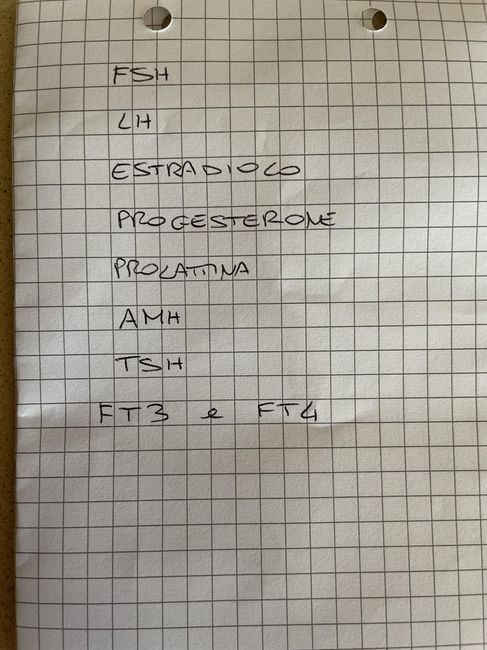 FSH
LH
ESTRADIOLO
PROGESTERONE
PROLATTINA
AMH
TSH
FT3 e FT4